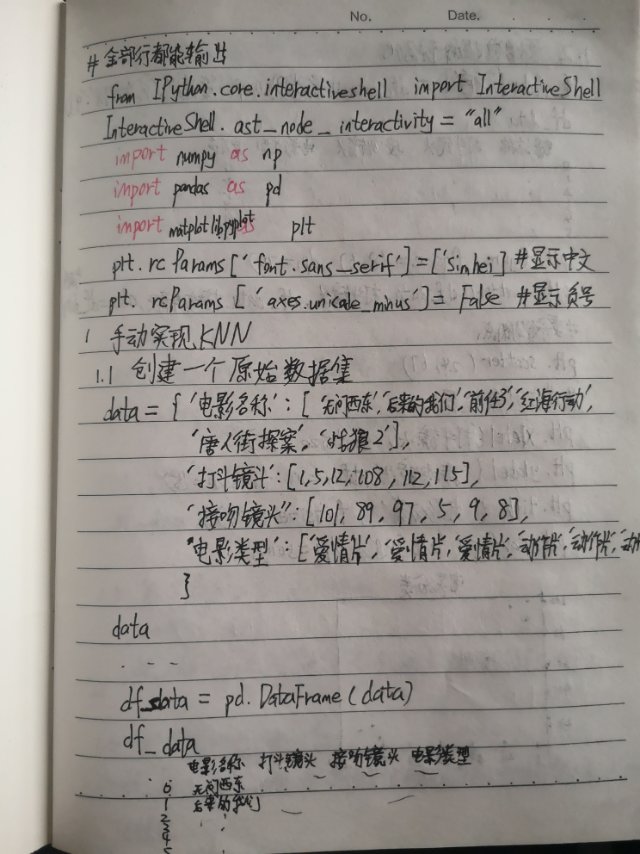 No. Date.
# 全部行都能输出
from IPython.core.interactiveshell import InteractiveShell
InteractiveShell. ast_node_interactivity = "all"
import numpy as np
import pandas as pd
import matplotlib.pyplot as plt
plt. rc Params ['font.sans_serif']=['sinhei] #显示中文
plt. rcParams ['axes.unicode_minus']= False #显示负号
1 手动实现KNN
1.1 创建一个原始数据集
data = { '电影名称': [ '无问西东','后来的我们','前任3','红海行动',
'唐人街探案','战狼2'],
'打斗镜头': [1,5,12,108,112,115],
'接吻镜头": [101, 89, 97, 5, 9, 8],
"电影类型': ['爱情片','爱情片','爱情片','动作片','动作片','动
}
data
- - -
df_data = pd. DataFrame (data)
df_ data
电影名称 打斗镜头 接吻镜头 电影类型
0 无问西东
1 后来的我们
2
3
4
5